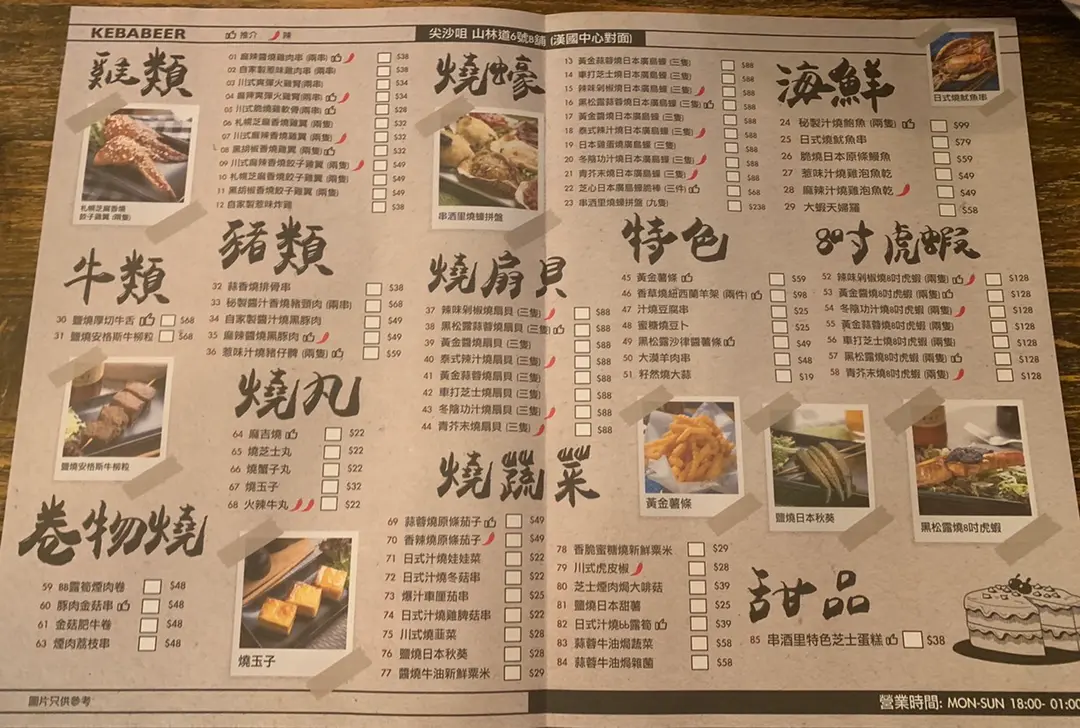 KEBABEER
推介
辣
尖沙咀 山林道6號B舖 (漢國中心對面)
雞類
01 麻辣醬燒雞肉串 (兩串) $38
02 自家製惹味雞肉串 (兩串) $38
03 川式爽彈火雞腎(兩串) $34
04 麻辣爽彈火雞腎(兩串) $34
05 川式脆燒雞軟骨(兩串) $28
06 札幌芝麻香燒雞翼 (兩隻) $32
07 川式麻辣香燒雞翼 (兩隻) $32
08 黑胡椒香燒雞翼 (兩隻) $32
09 川式麻辣香燒餃子雞翼 (兩隻) $49
10 札幌芝麻香燒餃子雞翼 (兩隻) $49
11 黑胡椒香燒餃子雞翼 (兩隻) $49
12 自家製惹味炸雞 $38
札幌芝麻香燒
餃子雞翼 (兩隻)
燒蠔
串酒里燒蠔拼盤
13 黃金蒜蓉燒日本廣島蠔 (三隻) $88
14 車打芝士燒日本廣島蠔 (三隻) $88
15 辣味剁椒燒日本廣島蠔 (三隻) $88
16 黑松露蒜蓉燒日本廣島蠔 (三隻) $88
17 黃金醬燒日本廣島蠔 (三隻) $88
18 泰式辣汁燒日本廣島蠔 (三隻) $88
19 日本雞蛋燒廣島蠔 (三隻) $88
20 冬陰功汁燒日本廣島蠔 (三隻) $88
21 青芥末燒日本廣島蠔 (三隻) $88
22 芝心日本廣島蠔脆棒 (三件) $68
23 串酒里燒蠔拼盤 (九隻) $238
海鮮
日式燒魷魚串
24 秘製汁燒鮑魚 (兩隻) $99
25 日式燒魷魚串 $79
26 脆燒日本原條鰻魚 $59
27 惹味汁燒雞泡魚乾 $49
28 麻辣汁燒雞泡魚乾 $49
29 大蝦天婦羅 $58
牛類
30 鹽燒厚切牛舌 $68
31 鹽燒安格斯牛柳粒 $68
鹽燒安格斯牛柳粒
豬類
32 蒜香燒排骨串 $38
33 秘製醬汁香燒豬頸肉 (兩串) $68
34 自家製醬汁燒黑豚肉 $49
35 麻辣醬燒黑豚肉 $49
36 惹味汁燒豬仔髀 (兩隻) $59
燒扇貝
37 辣味剁椒燒扇貝 (三隻) $88
38 黑松露蒜蓉燒扇貝 (三隻) $88
39 黃金醬燒扇貝 (三隻) $88
40 泰式辣汁燒扇貝 (三隻) $88
41 黃金蒜蓉燒扇貝 (三隻) $88
42 車打芝士燒扇貝 (三隻) $88
43 冬陰功汁燒扇貝 (三隻) $88
44 青芥末燒扇貝 (三隻) $88
特色
45 黃金薯條 $59
46 香草燒紐西蘭羊架 (兩件) $98
47 汁燒豆腐串 $25
48 蜜糖燒豆卜 $25
49 黑松露沙律醬薯條 $49
50 大漠羊肉串 $48
51 籽然燒大蒜 $19
8吋虎蝦
52 辣味剁椒燒8吋虎蝦 (兩隻) $128
53 黃金醬燒8吋虎蝦 (兩隻) $128
54 冬陰功汁燒8吋虎蝦 (兩隻) $128
55 黃金蒜蓉燒8吋虎蝦 (兩隻) $128
56 車打芝士燒8吋虎蝦 (兩隻) $128
57 黑松露燒8吋虎蝦 (兩隻) $128
58 青芥末燒8吋虎蝦 (兩隻) $128
黃金薯條
鹽燒日本秋葵
黑松露燒8吋虎蝦
卷物燒
59 BB露筍煙肉卷 $48
60 豚肉金菇串 $48
61 金菇肥牛卷 $48
63 煙肉荔枝串 $48
燒丸
64 麻吉燒 $22
65 燒芝士丸 $22
66 燒蟹子丸 $22
67 燒玉子 $32
68 火辣牛丸 $22
燒玉子
燒蔬菜
69 蒜蓉燒原條茄子 $49
70 香辣燒原條茄子 $49
71 日式汁燒娃娃菜 $22
72 日式汁燒冬菇串 $22
73 爆汁車厘茄串 $25
74 日式汁燒雞脾菇串 $22
75 川式燒韮菜 $28
76 鹽燒日本秋葵 $28
77 醬燒牛油新鮮粟米 $29
78 香脆蜜糖燒新鮮粟米 $29
79 川式虎皮椒 $28
80 芝士煙肉焗大啡菇 $39
81 鹽燒日本甜薯 $25
82 日式汁燒bb露筍 $39
83 蒜蓉牛油焗蔬菜 $58
84 蒜蓉牛油焗雜菌 $58
甜品
85 串酒里特色芝士蛋糕 $38
圖片只供參考
營業時間: MON-SUN 18:00- 01:00